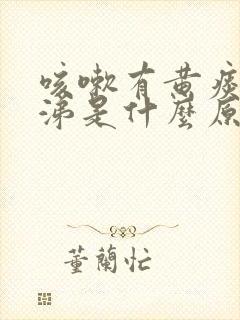 咳嗽有黄痰
涕是什麽原
董蘭忙